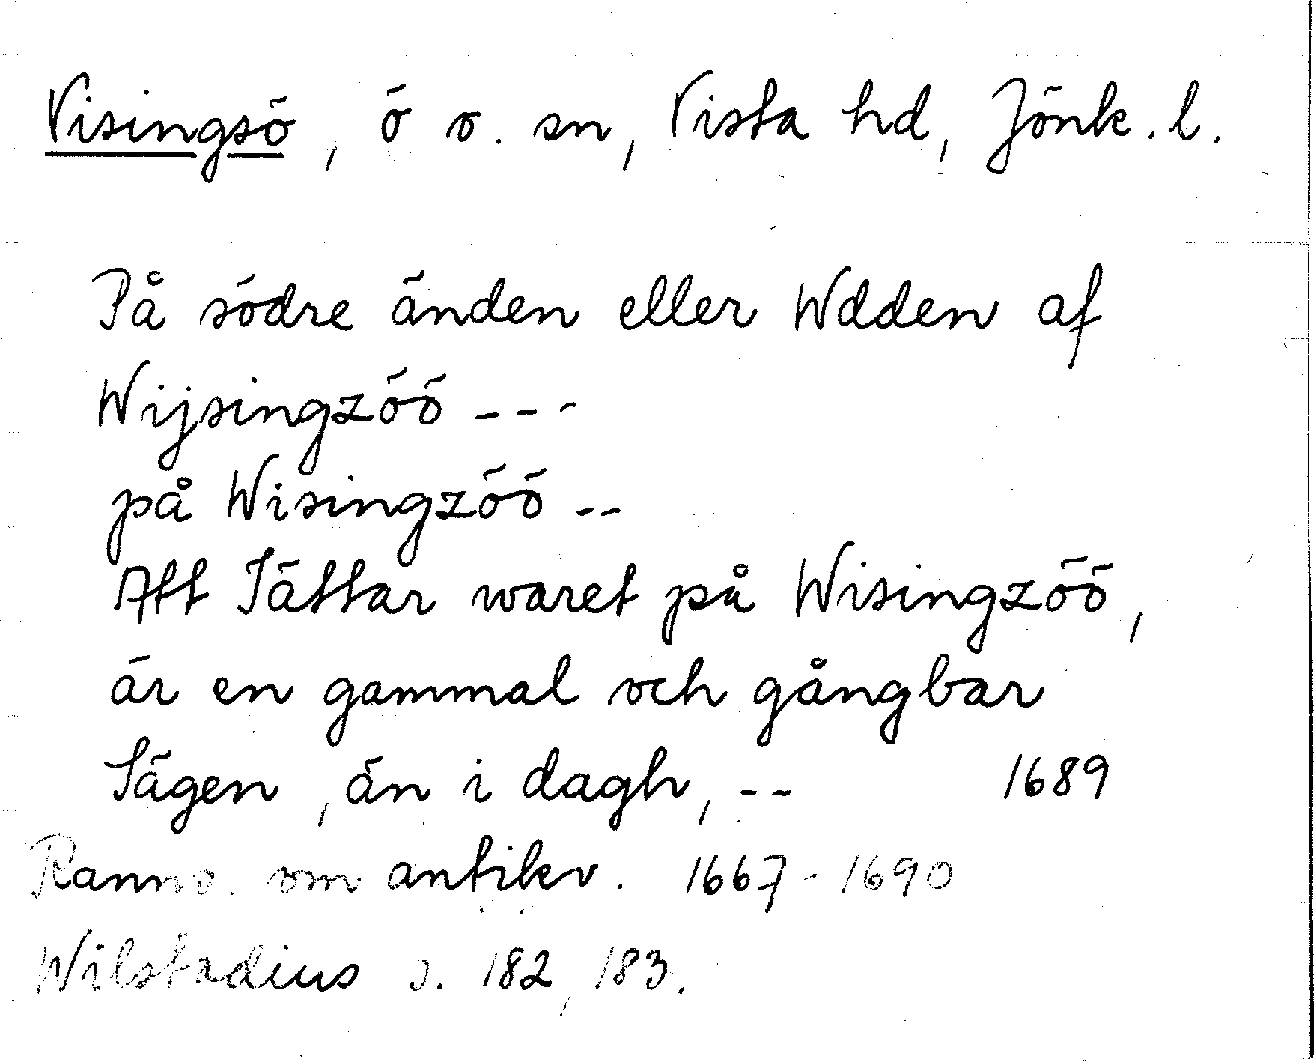 Visingsö, ö o. sn, Vista hd, Jönk. l.
På södre änden eller Wdden af
Wijsingzöö ---
på Wisingzöö --
Att Jättar waret på Wisingzöö,
är en gammal och gångbar
Sägen, än i dagh, -- 1689
Ranns. om antikv. 1667-1690
Wilstadius s. 182, 183.